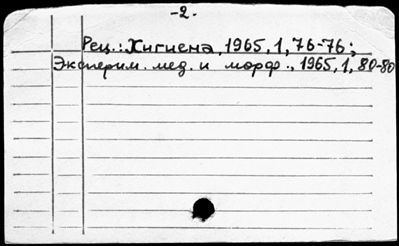 -2.-
Рец.: Хигиена, 1965, 1, 76-76;
Эксперим. мед. и морф., 1965, 1, 80-80